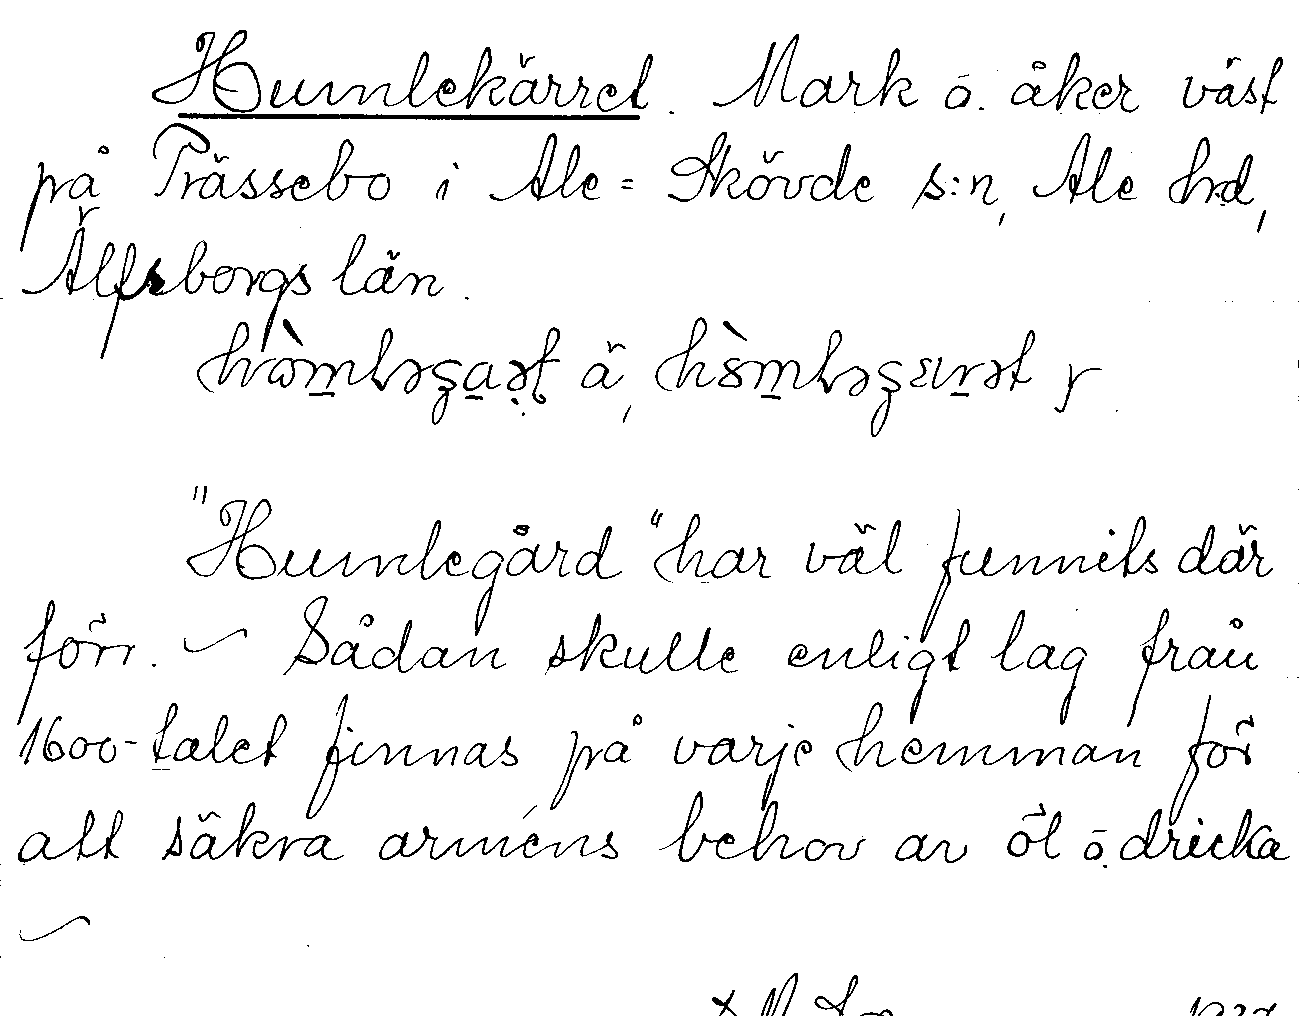 Humlekärret. Mark o. åker väst
på Prässebo i Ale=Skövde s:n, Ale hd,
Älfsborgs län.
ä, y
"Humlegård" har väl funnits där
förr. ~ Sådan skulle enligt lag från
1600-talet finnas på varje hemman för
att säkra arméns behov av öl o. dricka
~